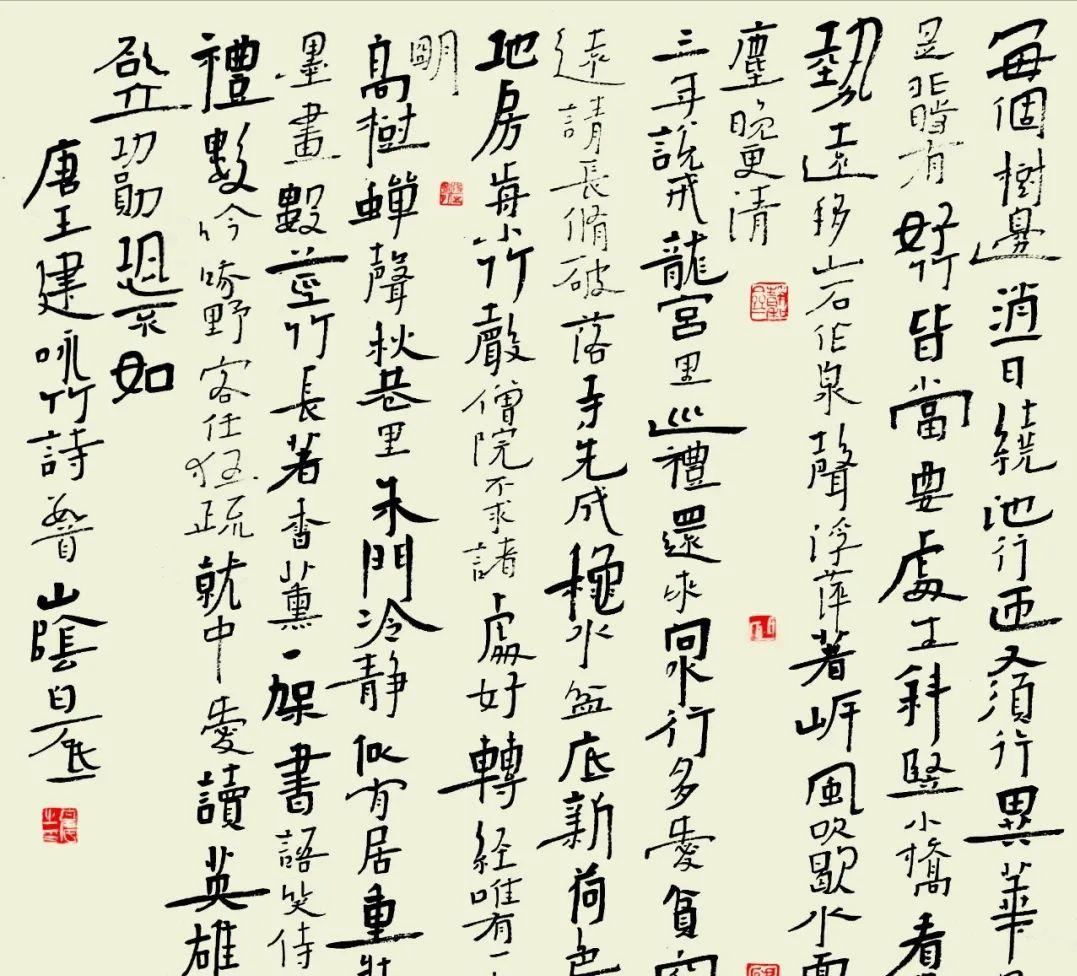 每個樹邊消一日繞池行匝又須行異華
是非時有好竹皆當要處生斜竪小橋看
勢遠移山石作泉聲浮萍著岸風吹歇水面
塵晚更清
三年說戒龍宮里巡禮還來向水行多愛貧窮
遠請長脩破落寺先成穐水盆底新荷色
地房前小竹聲僧院不求諸處好轉経唯有一
明
高樹蟬聲秋巷里朱門冷靜似居重壯
墨畫數莖竹長著香薰一架書語笑侍
禮數吟野客任狂疏就中愛讀英雄
欲立功勛恐不如
唐王建咏竹詩晉山陰白